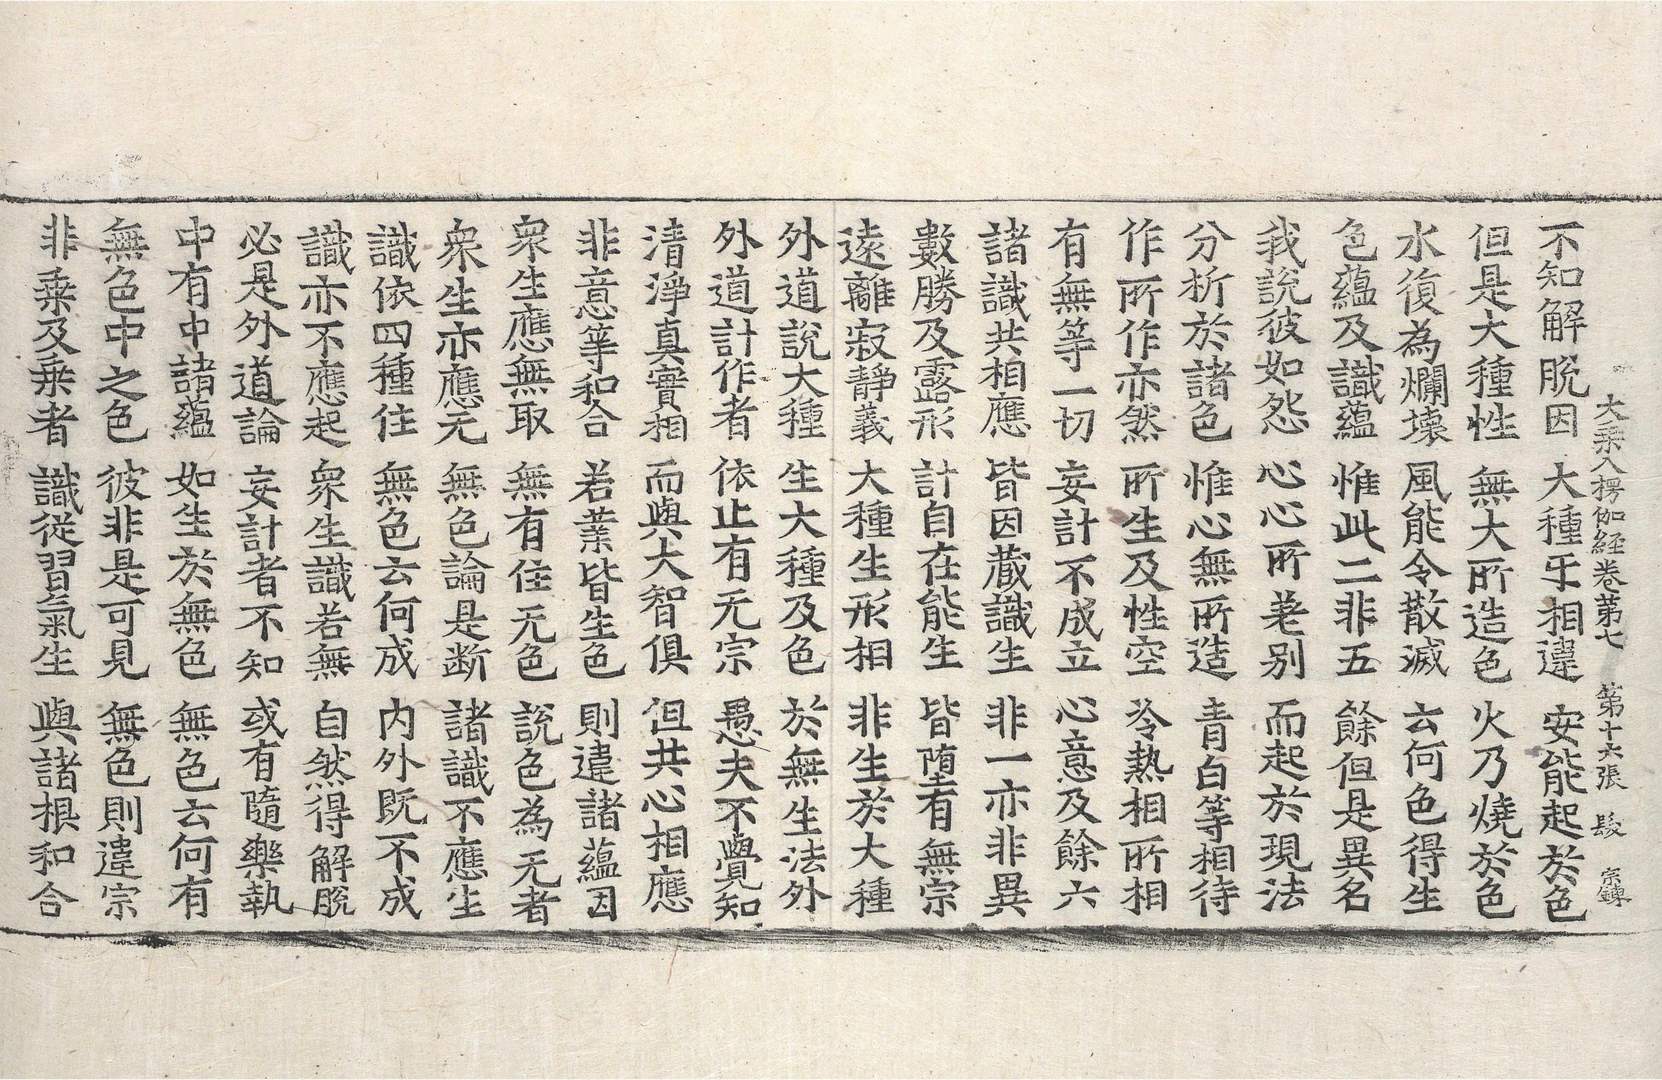 大乗入楞伽経卷第七 第十六張 髮 宗鍊
不知解脫因 大種互相違 安能起於色
但是大種性 無大所造色 火乃燒於色
水復為爛壞 風能令散滅 云何色得生
色蘊及識蘊 惟此二非五 餘但是異名
我說彼如怨 心心所差別 而起於現法
分析於諸色 惟心無所造 青白等相待
作所作亦然 所生及性空 冷熱相所相
有無等一切 妄計不成立 心意及餘六
諸識共相應 皆因藏識生 非一亦非異
數勝及露形 計自在能生 皆墮有無宗
遠離寂靜義 大種生形相 非生於大種
外道說大種 生大種及色 於無生法外
外道計作者 依止有无宗 愚夫不覺知
清淨真實相 而與大智俱 但共心相應
非意等和合 若業皆生色 則違諸蘊因
衆生應無取 無有住无色 說色為无者
衆生亦應无 無色論是断 諸識不應生
識依四種住 無色云何成 內外既不成
識亦不應起 衆生識若無 自然得解脫
必是外道論 妄計者不知 或有隨樂執
中有中諸蘊 如生於無色 無色云何有
無色中之色 彼非是可見 無色則違宗
非乗及乗者 識從習氣生 與諸根和合